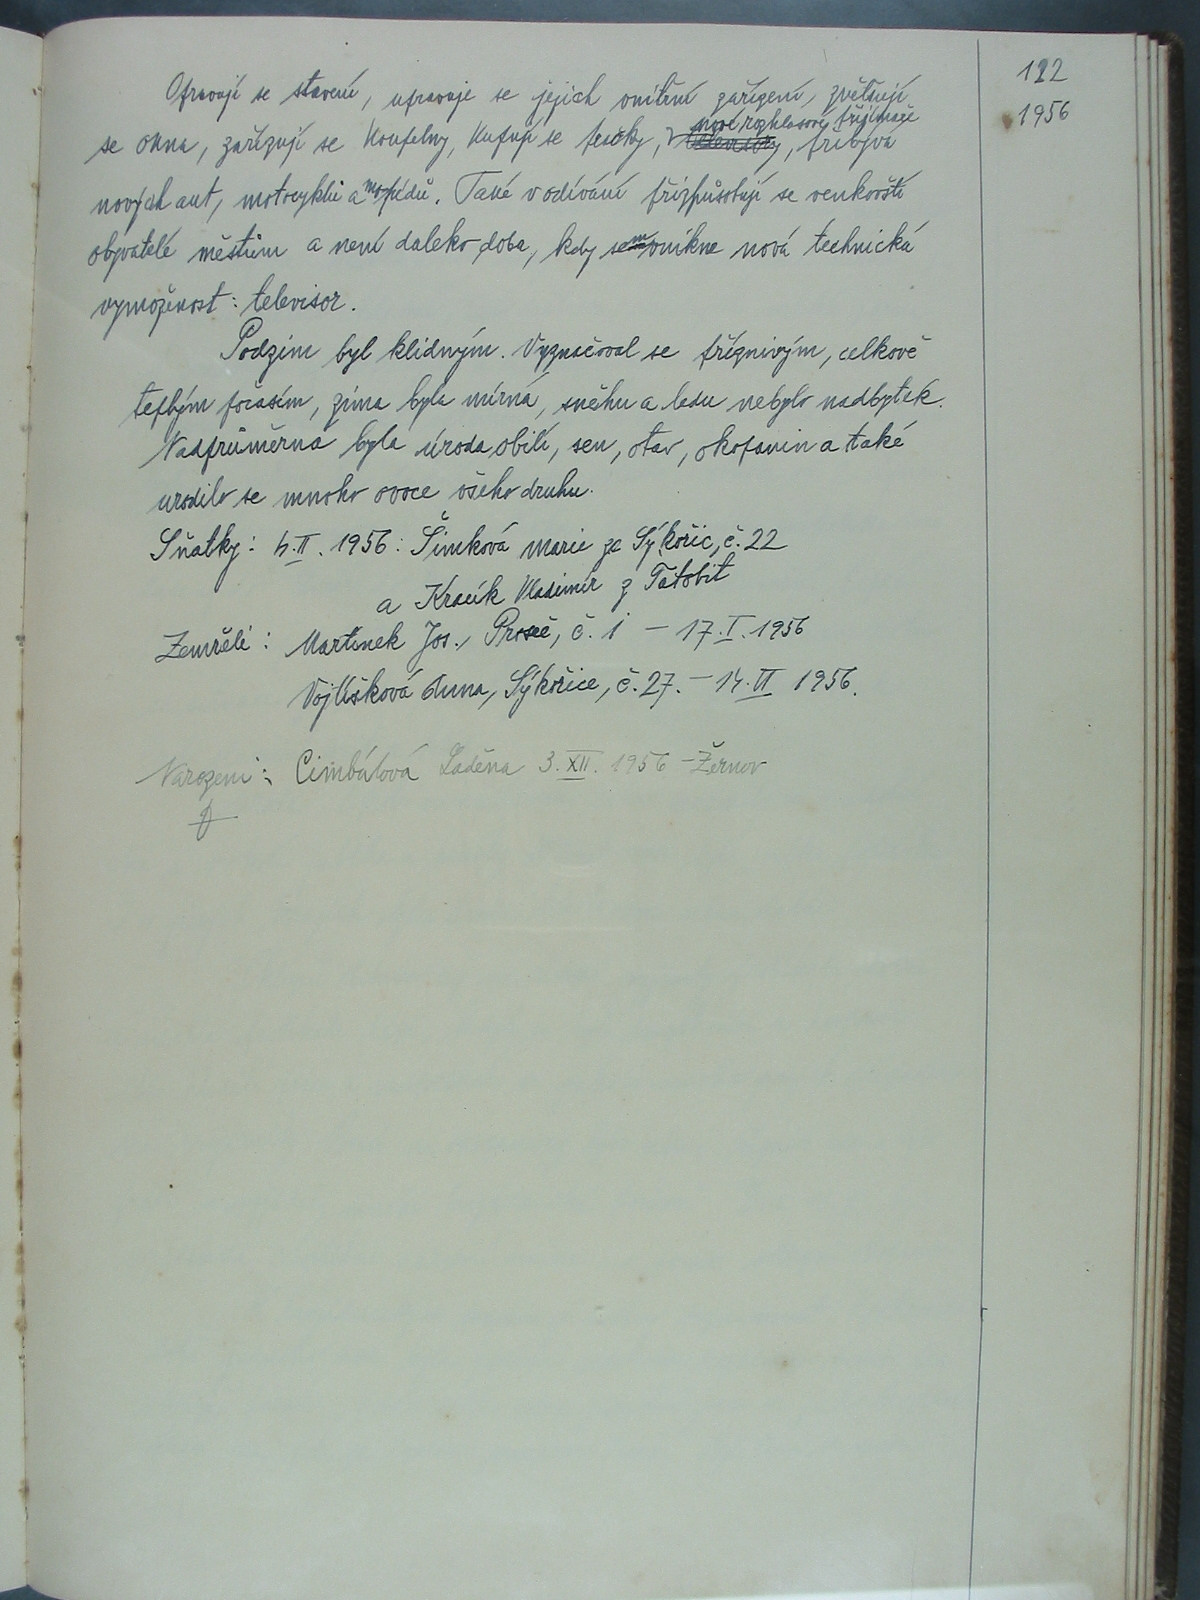 122
1956
Opravují se stavení, upravuje se jejich vnitřní zařízení, zvětšují
se okna, zařizují se koupelny, kupují se pračky, nové rozhlasové přijímače, televisory, přibývá
nových aut, motocyklů a mopédů. Také v odívání přizpůsobují se venkovští
obyvatelé městům a není daleko doba, kdy sem vnikne nová technická
vymoženost: televisor.
Podzim byl klidným. Vyznačoval se příznivým, celkově
teplým počasím, zima byla mírná, sněhu a ledu nebylo nadbytek.
Nadprůměrná byla úroda obilí, sen, otav, okopanin a také
urodilo se mnoho ovoce všeho druhu.
Sňatky: 4.II. 1956: Šimková Marie ze Sýkořic, č. 22
a Kracík Vladimír z Tatobit
Zemřeli: Martinek Jos., Proseč, č. 1 – 17.I. 1956
Vojtíšková Anna, Sýkořice, č. 27. – 14. VI 1956.
Narozeni: Cimbálová Laděna 3. XII. 1956 – Žernov